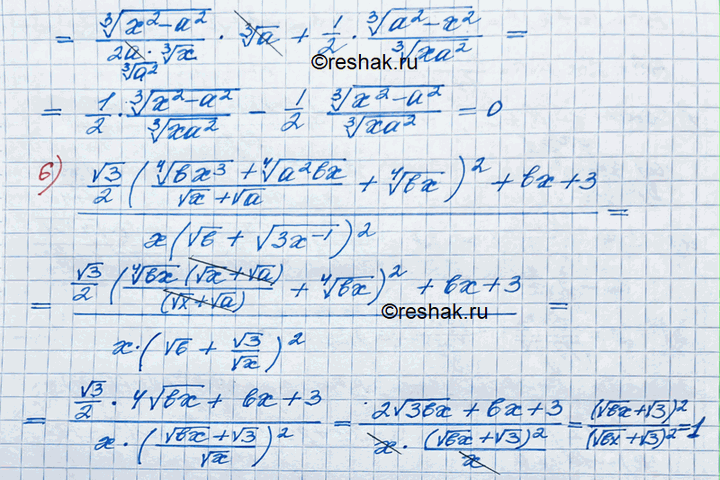 = \frac{\sqrt[3]{x^2-a^2}}{2a \cdot \sqrt[3]{x}} \cdot \sqrt[3]{a} + \frac{1}{2} \cdot \frac{\sqrt[3]{a^2-x^2}}{\sqrt[3]{xa^2}} =
\sqrt[3]{a^2}
©reshak.ru
= \frac{1}{2} \cdot \frac{\sqrt[3]{x^2-a^2}}{\sqrt[3]{xa^2}} - \frac{1}{2} \frac{\sqrt[3]{x^2-a^2}}{\sqrt[3]{xa^2}} = 0
б) \frac{\frac{\sqrt{3}}{2} \left( \frac{\sqrt[4]{bx^3} + \sqrt[4]{a^2bx}}{\sqrt{x}+\sqrt{a}} + \sqrt[4]{bx} \right)^2 + bx + 3}{x(\sqrt{b} + \sqrt{3x^{-1}})^2} =
= \frac{\frac{\sqrt{3}}{2} \left( \frac{\sqrt[4]{bx}(\sqrt{x}+\sqrt{a})}{(\sqrt{x}+\sqrt{a})} + \sqrt[4]{bx} \right)^2 + bx + 3}{x \cdot \left( \sqrt{b} + \frac{\sqrt{3}}{\sqrt{x}} \right)^2} =
©reshak.ru
= \frac{\frac{\sqrt{3}}{2} \cdot 4\sqrt{bx} + bx + 3}{x \cdot \left( \frac{\sqrt{bx}+\sqrt{3}}{\sqrt{x}} \right)^2} = \frac{2\sqrt{3bx} + bx + 3}{x \cdot \frac{(\sqrt{bx}+\sqrt{3})^2}{x}} = \frac{(\sqrt{bx}+\sqrt{3})^2}{(\sqrt{bx}+\sqrt{3})^2} = 1